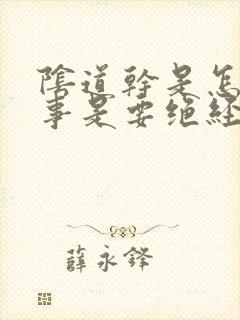 陰道幹是怎
事是要绝经
薛永鋒